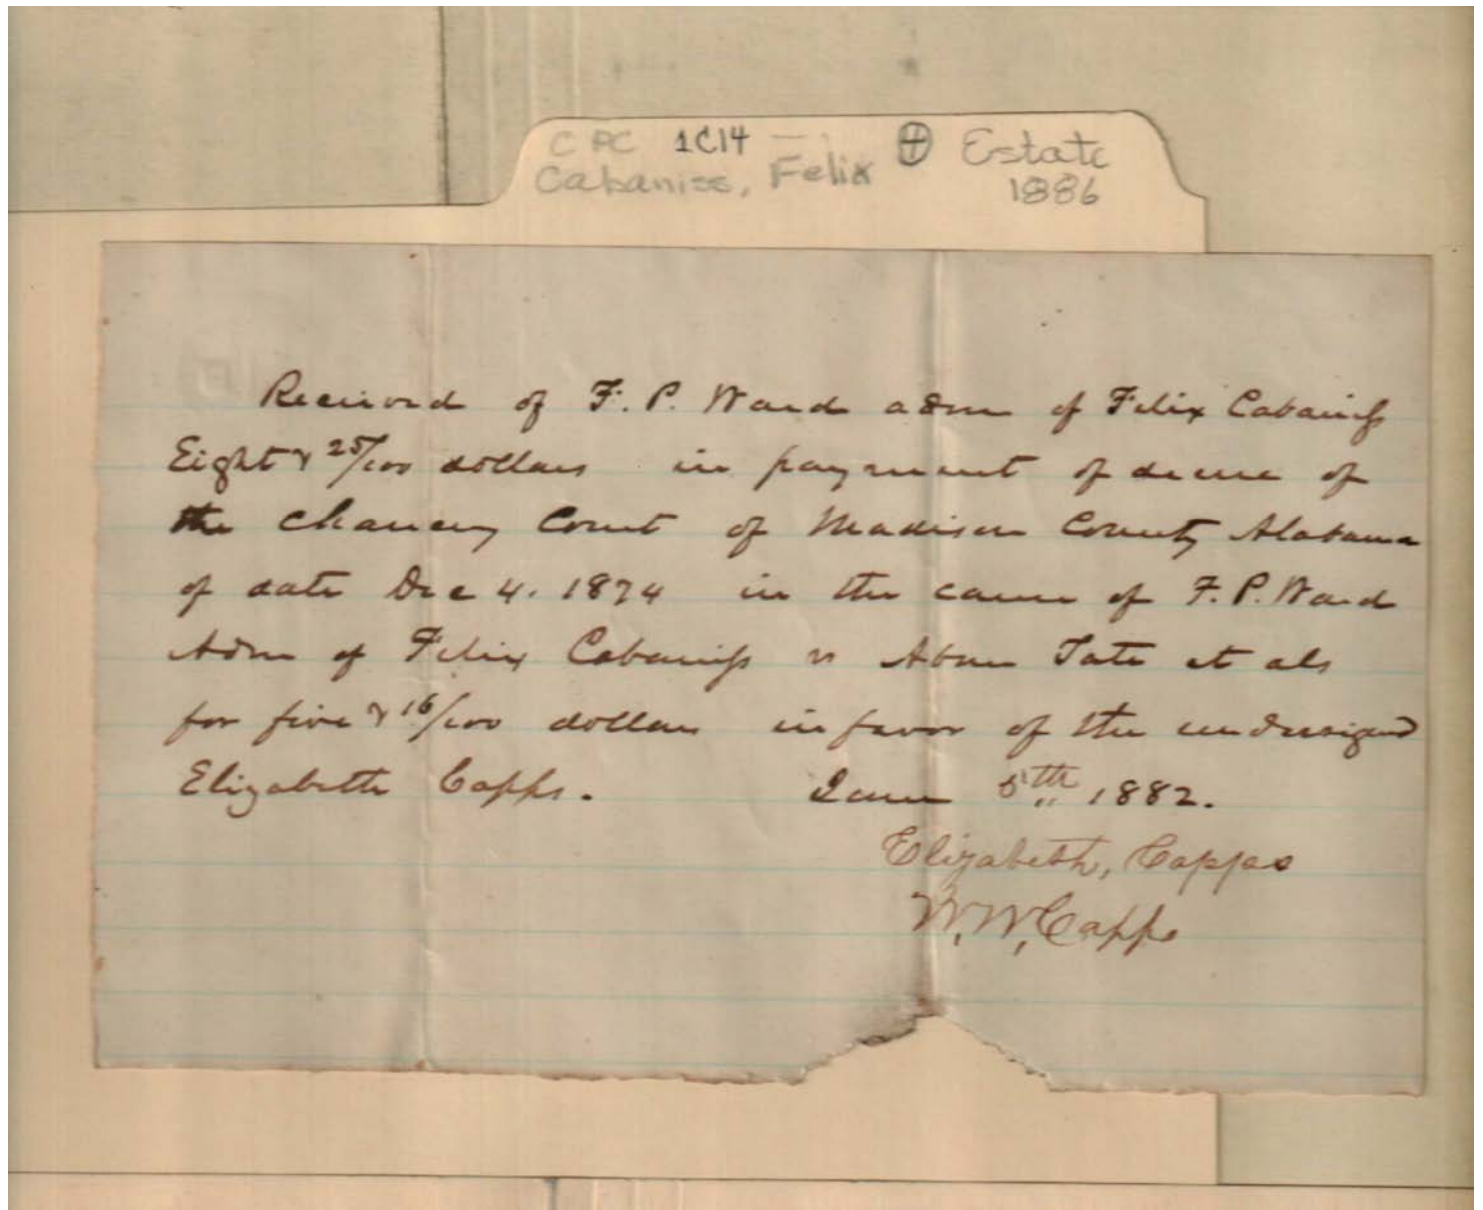 CPC 1C14 — . ⊕ Estate
Cabaniss, Felix 1886
Received of F. P. Ward adm of Felix Cabaniss
Eight & 25/100 dollars in payment of decree of
the Chancery Court of Madison County Alabama
of date Dec 4. 1874 in the cause of F. P. Ward
Adm of Felix Cabaniss vs Tate et als
for five & 16/100 dollars in favor of the undersigned
Elizabeth Capps. 5th 1882.
Elizabeth, Capps
W. W, Capps